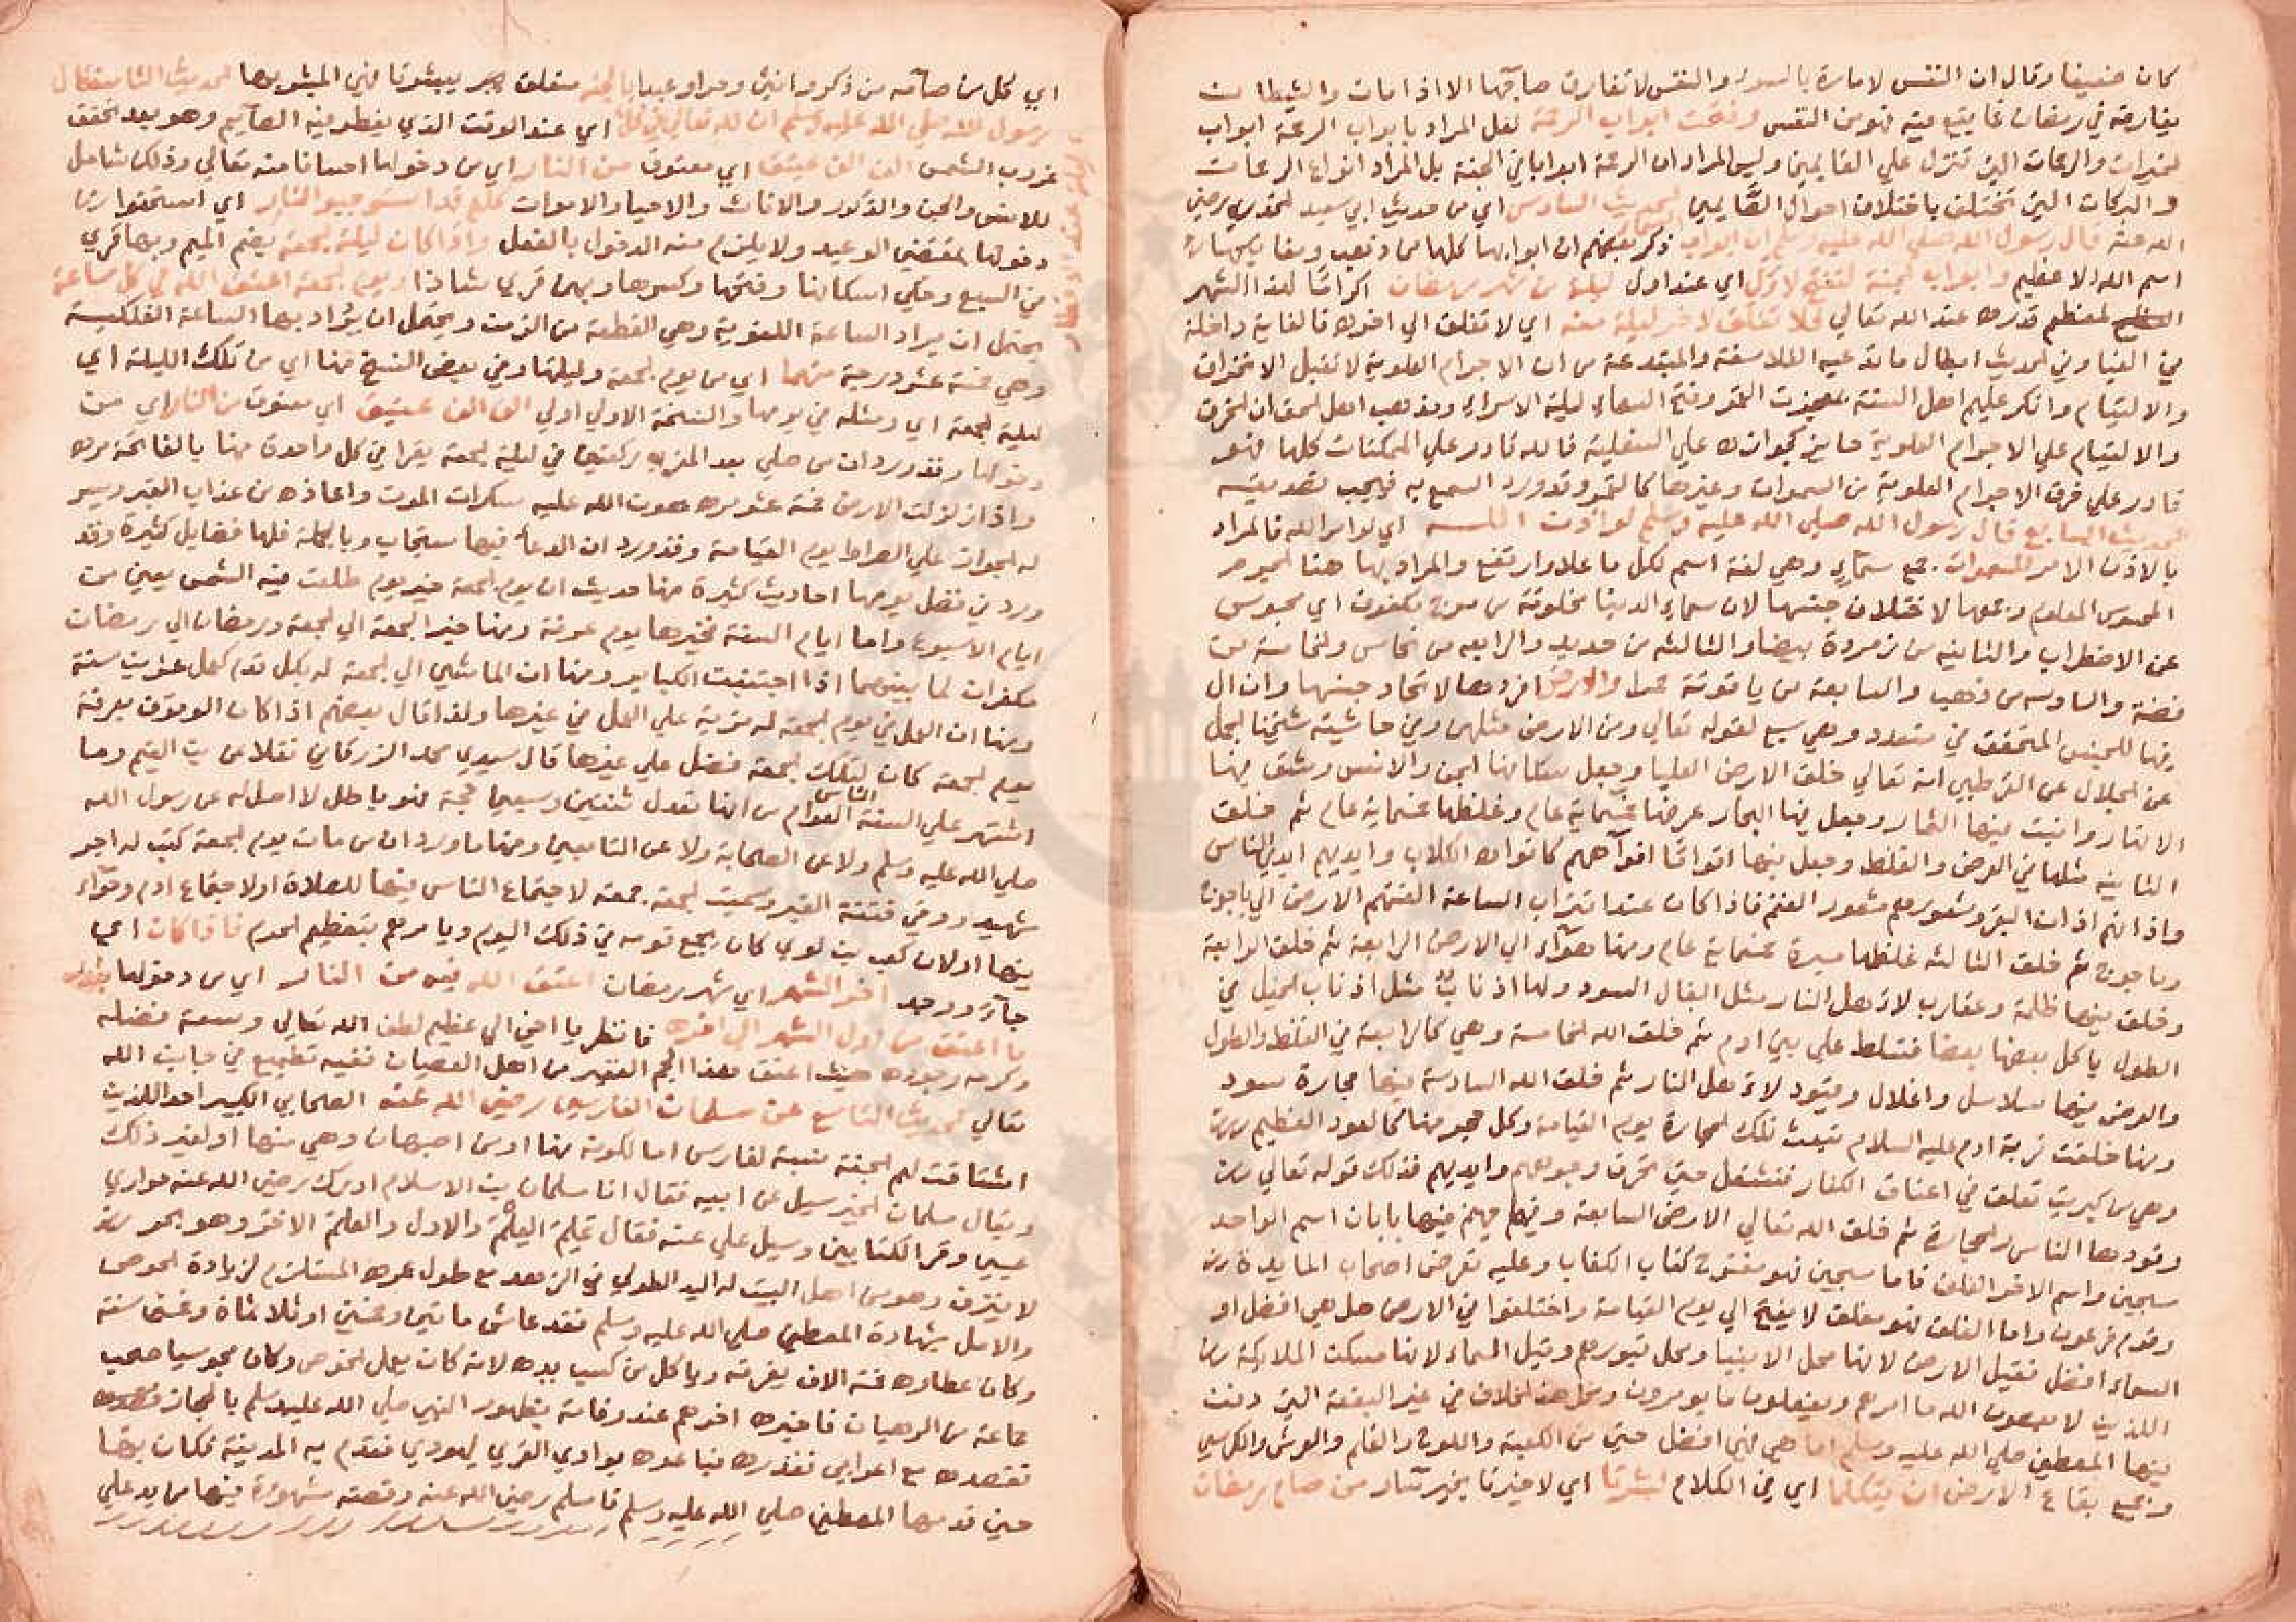 كان ضعيفا وقال ان النفس لامارة بالسوء والنفس لا تفارق صاحبها الا اذا مات والشيطان
يفارقه في رمضان فما يقع فيه فهو من النفس وفتحت ابواب الرحمة لعل المراد بابواب الرحمة ابواب
الخيرات والرحمات التي تنزل علي القايمين وليس المراد ان الرحمة ابوابا في الجنة بل المراد انواع الرحمات
والبركات التي تختلف باختلاف احوال الصَّايمين الحديث السادس اي من حديث ابي سعيد الخدري رضي
الله عنه قال رسول الله صلى الله عليه وسلم ان ابواب السماء ذكر بعضهم ان ابوابها كلها من ذهب
اسم الله الاعظم وابواب الجنة لتفتح لاول اي عند اول ليلة من شهر رمضان اكراما لهذا الشهر
المعظم قدره عند الله تعالي فلا تغلق لاخر ليلة منه اي لا تغلق الي اخره فالغاية داخلة
في المغيا وفي الحديث ابطال ما تدعيه الفلاسفة والمبتدعة من ان الاجرام العلوية لا تقبل الانخراق
والالتيام وانكر عليهم اهل السنة بمعجزة القمر وفتح السماء ليلة الاسراء ومذهب اهل الحق ان الخرق
والالتيام علي الاجرام العلوية جايز كجوازه علي السفلية فالله قادر علي الممكنات كلها فهو
قادر علي خرق الاجرام العلوية من السموات وغيرها كالقمر وقد ورد السمع به فيجب تصديقه
الحديث السابع قال رسول الله صلى الله عليه وسلم لو اذن الله اي لو امر الله فالمراد
بالاذن الامر للسموات جمع سماء وهي لغة اسم لكل ما علا وارتفع والمراد بها هنا الجرم
المحسوس المعلوم وجمعها لاختلاف جنسها لان سماء الدنيا مخلوقة من موج مكفوف اي محبوس
عن الاضطراب والثانية من زمردة بيضا والثالثة من حديد والرابعة من نحاس والخامسة من
فضة والسادسة من ذهب والسابعة من ياقوتة حمرا والارض افردها لاتحاد جنسها وان ال
فيها للجنس المتحقق في متعدد وهي سبع لقوله تعالي ومن الارض مثلهن وفي حاشية شيخنا الجمل
عن الجلال عن القرطبي انه تعالي خلق الارض العليا وجعل سكانها الجن والانس وشق فيها
الانهار وانبت فيها الثمار وجعل فيها البحار عرضها خمسماية عام وغلظها خمسماية عام ثم خلق
الثانية مثلها في العرض والغلظ وجعل فيها اقواما افواههم كافواه الكلاب وايديهم ايدي الناس
واذانهم اذان البقر وشعورهم شعور الغنم فاذا كان عند اقتراب الساعة القتهم الارض الي ياجوج
وماجوج ثم خلق الثالثة غلظها مسيرة خمسماية عام ومنها هواء الي الارض الرابعة ثم خلق الرابعة
وخلق فيها ظلمة وعقارب لاهل النار مثل البغال السود ولها اذناب مثل اذناب الخيل في
الطول ياكل بعضها بعضا فتسلط علي بني ادم ثم خلق الله الخامسة وهي كالرابعة في الغلظ والطول
والعرض فيها سلاسل واغلال وقيود لاهل النار ثم خلق الله السادسة فيها حجارة سود
ومنها خلقت تربة ادم عليه السلام تبعث تلك الحجارة يوم القيامة وكل حجر منها كالطود العظيم
وهي من كبريت تعلق في اعناق الكفار فتشتعل حتي تحرق وجوههم وايديهم فذلك قوله تعالي
وقودها الناس والحجارة ثم خلق الله تعالي الارض السابعة وفيها جهنم فيها بابان اسم الواحد
سجين واسم الاخر الفلق فاما سجين فهو مفتوح كتاب الكفار وعليه تعرض اصحاب المايدة
وقوم فرعون واما الفلق فهو مغلق لا يفتح الي يوم القيامة واختلفوا في الارض هل هي افضل او
السماء افضل فقيل الارض لانها محل الانبيا ومحل قبورهم وقيل السماء لانها مسكن الملايكة
الذين لا يعصون الله ما امرهم ويفعلون ما يومرون ومحل هذا الخلاف في غير البقعة التي دفنت
فيها المصطفي صلي الله عليه وسلم اما هي فهي افضل حتي من الكعبة واللوح والقلم والعرش والكرسي
وجميع بقاع الارض ان يتكلما اي في الكلام لبشرتا اي لاخبرتا بخبر سار من صام رمضان
اي كل من صامه من ذكر وانثي وحر او عبد بالجنة متعلق ببشرتا فهي المبشر بها الحديث الثامن قال
رسول الله صلى الله عليه وسلم ان لله تعالي في كل اي عند الوقت الذي يفطر فيه الصايم وهو بعد تحقق
غروب الشمس الف الف عتيق اي معتوق من النار اي من دخولها احسانا منه تعالي وذلك شامل
للانس والجن والذكور والاناث والاحياء والاموات كلهم قد استوجبوا النار اي استحقوا
دخولها بمقتضي الوعيد ولا يلزم منه الدخول بالفعل واذا كان ليلة الجمعة بضم الميم وبها قري
في السبع وحكي اسكانها وفتحها وكسرها وبهن قري شاذا ويوم الجمعة اعتق الله في كل ساعة
يحتمل ان يراد الساعة اللغوية وهي القطعة من الزمن ويحتمل ان يراد بها الساعة الفلكية
وهي خمسة عشر درجة منهما اي من يوم الجمعة وليلتها وفي بعض النسخ منها اي من تلك الليلة اي
ليلة الجمعة اي ومثله في يومها والنسخة الاولي اولي الف الف عتيق اي معتوق من النار اي من
دخولها وقد ورد ان من صلي بعد المغرب ركعتين في ليلة الجمعة يقرا في كل واحدة منها بالفاتحة مرة
واذا زلزلت الارض خمسة عشر مرة هون الله عليه سكرات الموت واعاذه من عذاب القبر ويسر
له الجواز علي الصراط يوم القيامة وقد ورد ان الدعاء فيها مستجاب وبالجملة فلها فضايل كثيرة وقد
ورد في فضل يومها احاديث كثيرة منها حديث ان يوم الجمعة خير يوم طلعت فيه الشمس يعني من
ايام الاسبوع واما ايام السنة فخيرها يوم عرفة ومنها خبر الجمعة الي الجمعة ورمضان الي رمضان
مكفرات لما بينهما اذا اجتنبت الكباير ومنها ان الماشي الي الجمعة له بكل قدم كعمل عشرين سنة
ومنها ان العمل في يوم الجمعة له مزية علي العمل في غيرها ولذا قال بعضهم اذا كان الوقوف بعرفة
يوم الجمعة كان لتلك الجمعة فضل علي غيرها قال سيدي محمد الزرقاني نقلا عن بن القيم وما
اشتهر علي السنة الناس العوام من انها تعدل ثنتين وسبعين حجة فهو باطل لا اصل له عن رسول الله
صلي الله عليه وسلم ولا عن الصحابة ولا عن التابعين ومنها ما ورد ان من مات يوم الجمعة كتب له اجر
شهيد ووقي فتنة القبر وسميت الجمعة جمعة لاجتماع الناس فيها للصلاة او لاجتماع ادم وحواء
فيها او لان كعب بن لوي كان يجمع قومه في ذلك اليوم ويامرهم بتعظيم الحرم فاذا كان اي
جاء ووجد اخر الشهر اي شهر رمضان اعتق الله فيه من النار اي من دخولها بقدر
ما اعتق من اول الشهر الي اخره فانظر يا اخي الي عظيم لطف الله تعالي وسعة فضله
وكرمه وجوده حيث اعتق هذا الجم الغفير من اهل العصيان ففيه تطميع في جانب الله
تعالي الحديث التاسع عن سلمان الفارسي رضي الله عنه الصحابي الكبير احد الذين
اشتاقت لهم الجنة نسبة لفارس اما لكونه منها او من اصبهان وهي منها او لغير ذلك
ويقال سلمان الخير سيل عن ابيه فقال انا سلمان بن الاسلام ادرك رضي الله عنه حواري
عيسي وقرا الكتابين وسيل علي عنه فقال علم العلم والاول والعلم الاخر وهو بحر
لا ينزف وهو من اهل البيت له اليد الطولي في الزهد مع طول عمره المستلزم لزيادة الحرص
والامل بشهادة المصطفي صلي الله عليه وسلم فقد عاش ماتين وخمسين او ثلاثماة وخمسين سنة
وكان عطاوه خمسة الاف يفرقه وياكل من كسب يده لانه كان يعمل الخوص وكان مجوسيا صحب
جماعة من الرهبان فاخبره اخرهم عند وفاته بظهور النبي صلي الله عليه وسلم بالحجاز
فقصده مع اعرابي فغدره فباعوه بوادي القري ليهودي فقدم به المدينة فكان بها
حين قدمها المصطفي صلي الله عليه وسلم فاسلم رضي الله عنه وقصته مشهورة فيها من يد علي